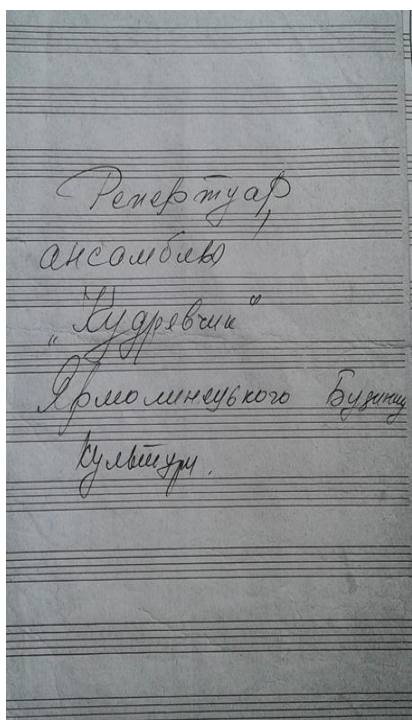 Репертуар
ансамблю
„Кудрявчик"
Ярмолинецького Будинку
культури.